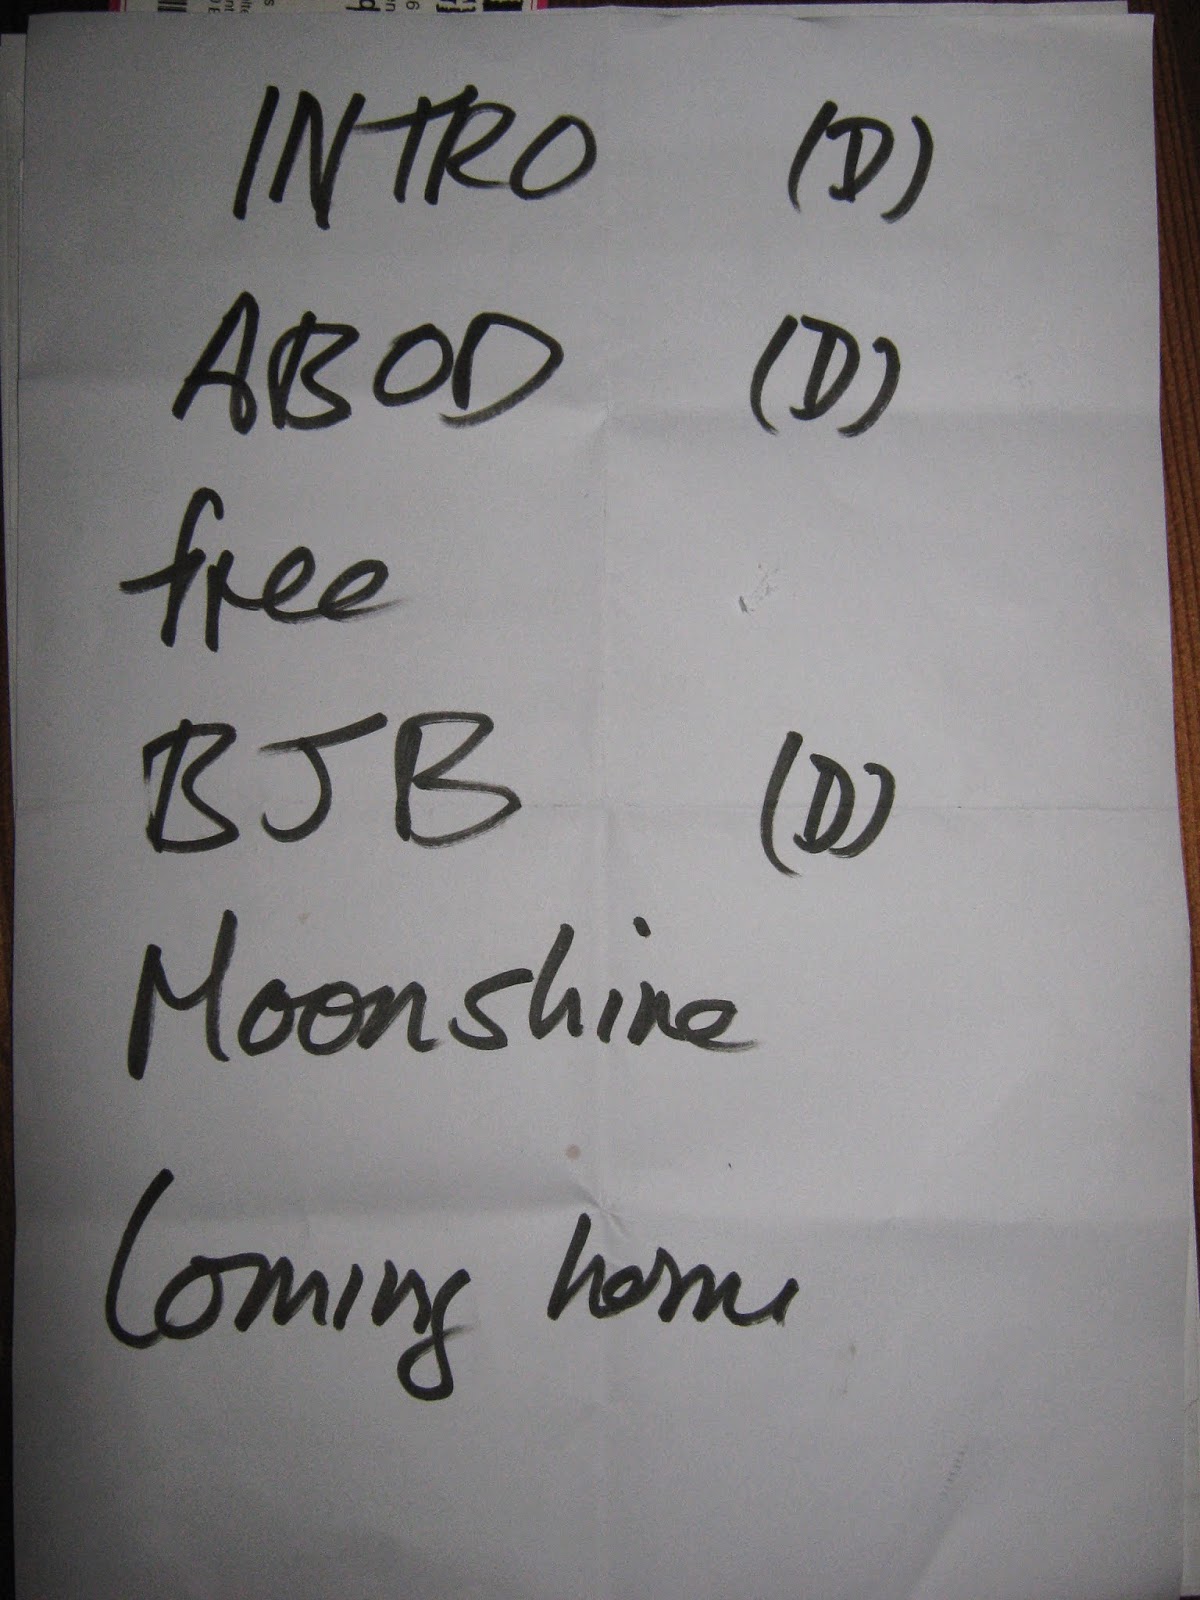 INTRO (D)
ABOD (D)
free
BJB (D)
Moonshine
Coming home